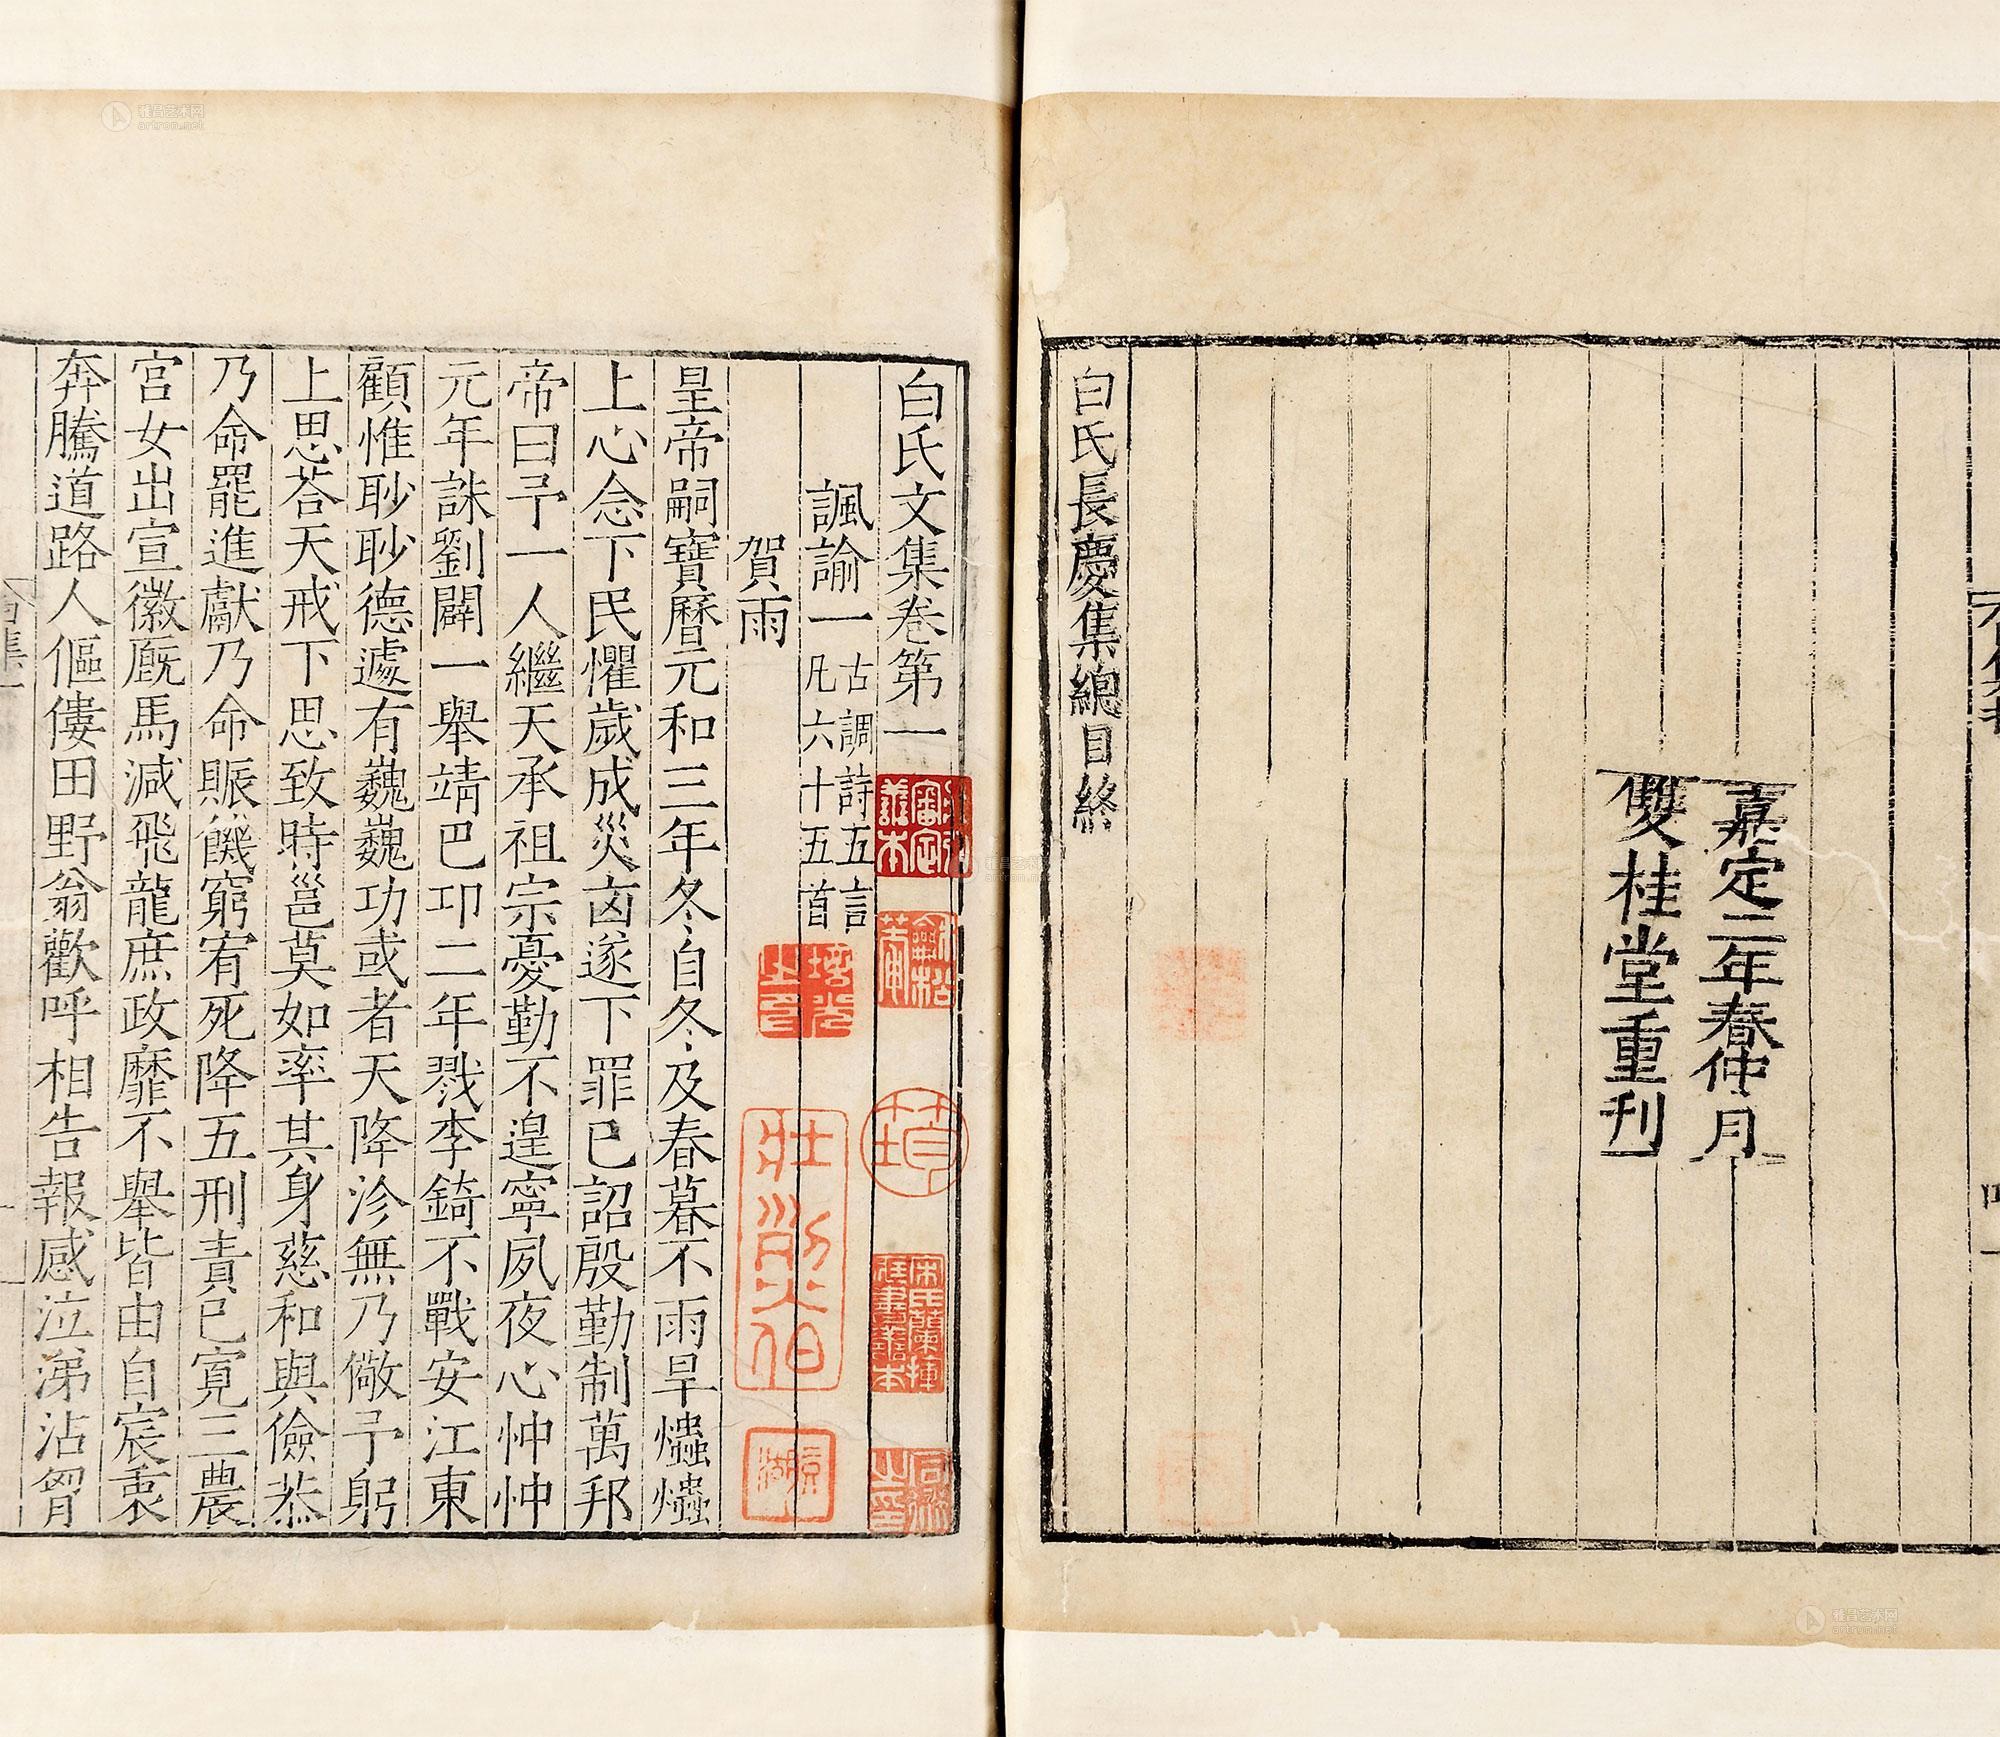 嘉定二年春仲月
雙桂堂重刊
白氏長慶集總目終
白氏文集卷第一
諷諭一 古調詩五言 凡六十五首
賀雨
皇帝嗣寶曆元和三年冬自冬及春暮不雨旱爞爞
上心念下民懼歲成災㐫遂下罪已詔殷勤制萬邦
帝曰予一人繼天承祖宗憂勤不遑寧夙夜心忡忡
元年誅劉闢一舉靖巴卭二年戮李錡不戰安江東
顧惟眇眇德遽有巍巍功或者天降沴無乃儆予躬
上思荅天戒下思致時邕莫如率其身慈和與儉恭
乃命罷進獻乃命賑饑窮宥死降五刑責已寬三農
宮女出宣徽厩馬減飛龍庶政靡不舉皆由自宸衷
奔騰道路人傴僂田野翁歡呼相告報感泣涕沾胷
雅昌艺术网
artron.net
雅昌艺术网
artron.net